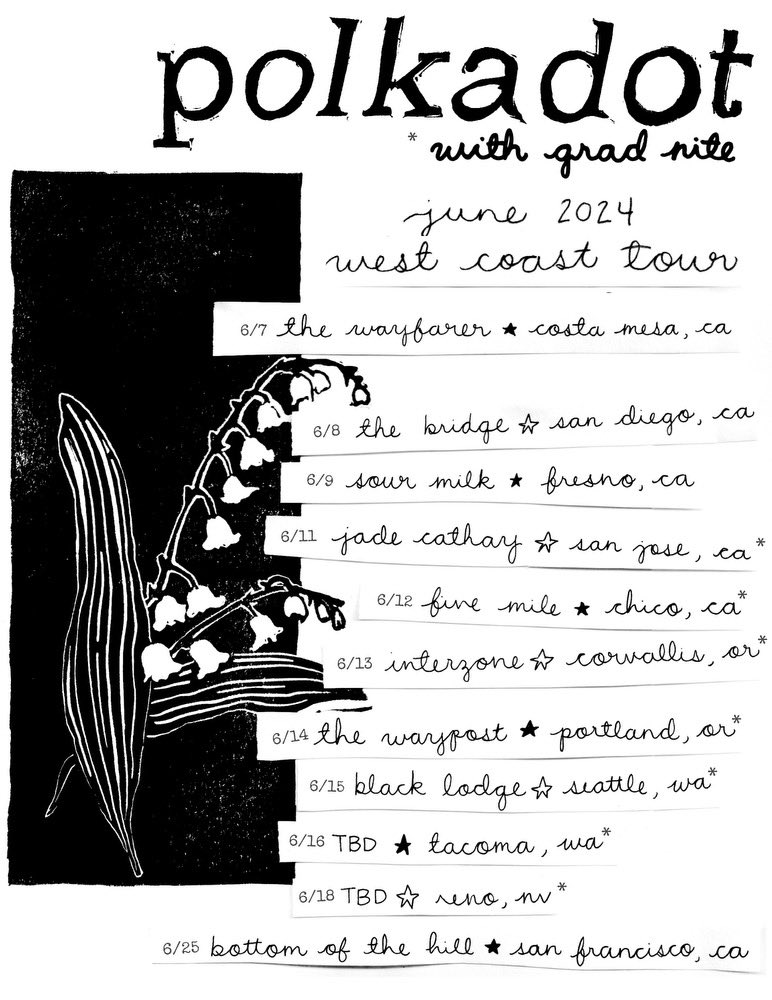 polkadot
* with grad nite
june 2024
west coast tour
6/7 the wayfarer ★ costa mesa, ca
6/8 the bridge ☆ san diego, ca
6/9 sour milk ★ fresno, ca
6/11 jade cathay ☆ san jose, ca*
6/12 five mile ★ chico, ca*
6/13 interzone ☆ corvallis, or*
6/14 the waypost ★ portland, or*
6/15 black lodge ☆ seattle, wa*
6/16 TBD ★ tacoma, wa*
6/18 TBD ☆ reno, nv*
6/25 bottom of the hill ★ san francisco, ca